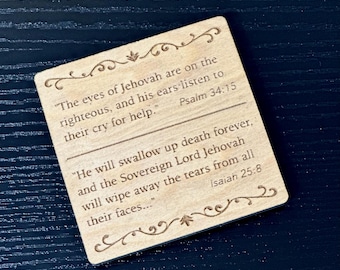 "The eyes of Jehovah are on the
righteous, and his ears listen to
their cry for help." Psalm 34:15
"He will swallow up death forever,
and the Sovereign Lord Jehovah
will wipe away the tears from all
their faces..." Isaiah 25:8